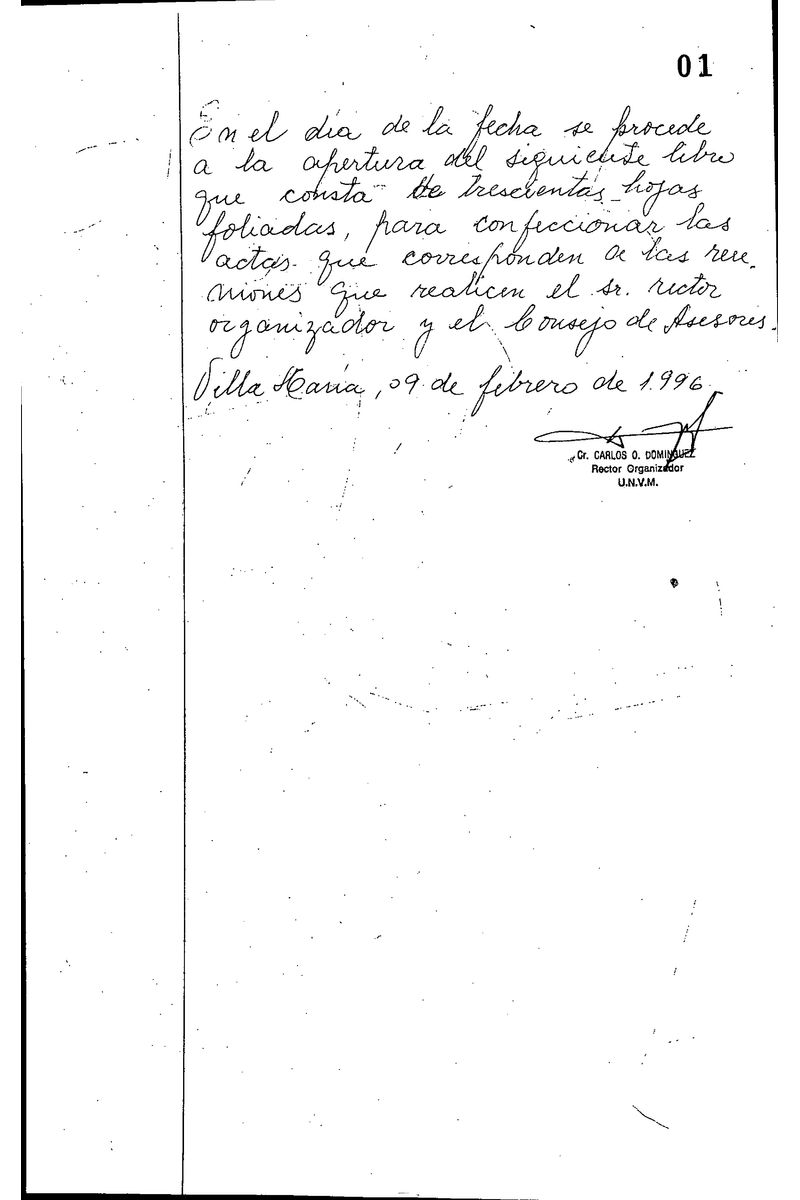 01
En el día de la fecha se procede
a la apertura del siguiente libro
que consta de trescientas hojas
foliadas, para confeccionar las
actas que corresponden a las reu-
niones que realicen el sr. rector
organizador y el Consejo de Asesores.
Villa María, 09 de febrero de 1996
Cr. CARLOS O. DOMINGUEZ
Rector Organizador
U.N.V.M.